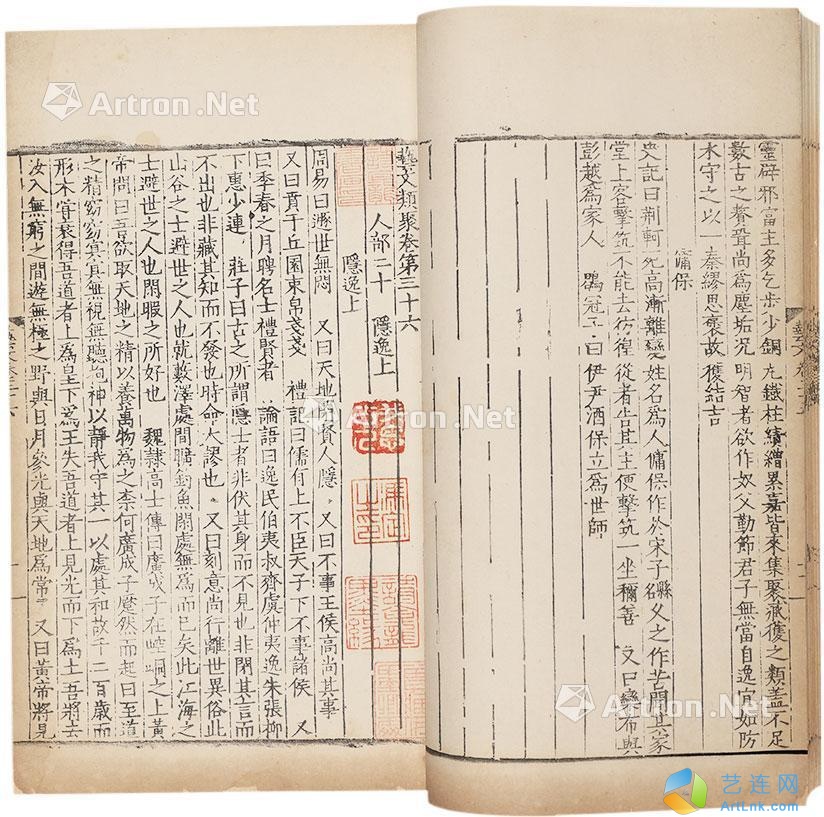 靈辟邪富主多乞步少銅丸鐵柱績繒累嘉皆來集聚臧獲之類蓋不足
數古之贅聳尚爲塵垢况明智者欲作奴父勤節君子無當自逸宜如防
水守之以一秦繆思褒故獲結吉
傭保
史記曰荆軻死高漸離變姓名爲人傭保作於宋子縣名父之作苦聞其家
堂上客擊筑不能去彷徨從者告其主使擊筑一坐稱善 又曰欒布與
彭越爲家人 鶡冠子曰伊尹酒保立爲世師
藝文類聚卷第三十六
人部二十 隱逸上
隱逸上
周易曰遯世無悶 又曰天地閉賢人隱 又曰不事王侯高尚其事
又曰賁于丘園束帛戔戔 禮記曰儒有上不臣天子下不事諸侯 又
曰季春之月聘名士禮賢者 論語曰逸民伯夷叔齊虞仲夷逸朱張柳
下惠少連 莊子曰古之所謂隱士者非伏其身而不見也非閉其言而
不出也非藏其知而不發也時命大謬也 又曰刻意尚行離世異俗此
山谷之士避世之人也就藪澤處閒曠釣魚閑處無爲而已矣此江海之
士避世之人也閑暇之所好也 魏隸高士傳曰廣成子在崆峒之上黄
帝問曰吾欲取天地之精以養萬物爲之柰何廣成子蹷然而起曰至道
之精窈窈冥冥無視無聽抱神以靜我守其一以處其和故千二百歲而
形未嘗衰得吾道者上爲皇下爲王失吾道者上見光而下爲土吾將去
汝入無窮之間遊無極之野與日月參光與天地爲常 又曰黄帝將見
Artron.Net
Artron.Net
Artron.Net
Artron.Net
Artron.Net
Artron.Net
艺连网
ArtLnk.com